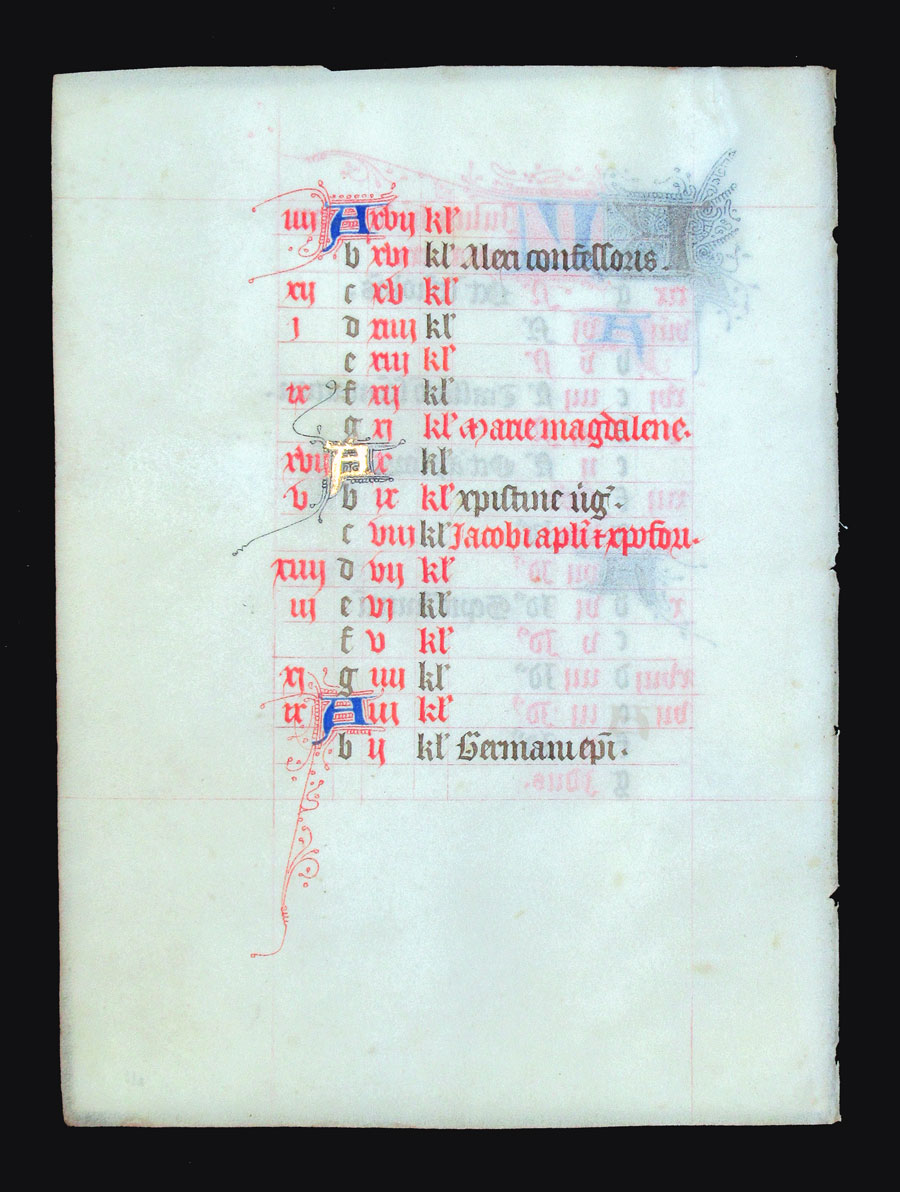 iiij A xvij kl'
b xvj kl' Alexi confessoris.
xij c xv kl'
j d xiiij kl'
e xiij kl'
ix f xij kl'
g xj kl' Marie magdalene.
xvij A x kl'
v b ix kl' xpistine uig'.
c viij kl' Jacobi apl'i ⁊ xpofori.
xiiij d vij kl'
iij e vj kl'
f v kl'
xj g iiij kl'
ix A iij kl'
b ij kl' Germani ep̄i.